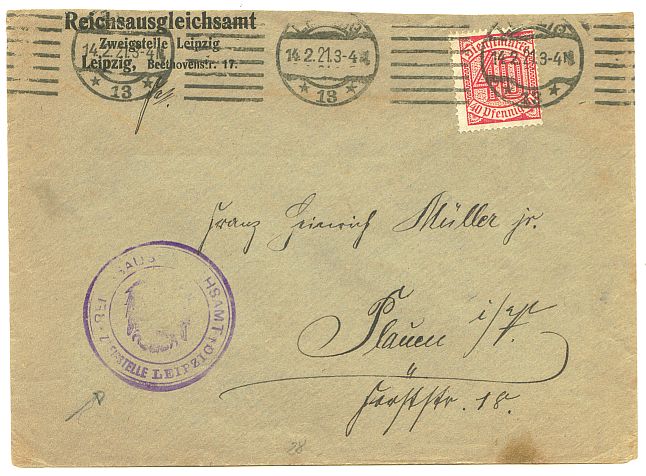 Reichsausgleichsamt
Zweigstelle Leipzig
Leipzig, Beethovenstr. 17.
14.2.21.3-4N
* 13 *
14.2.21.3-4N
* 13 *
14.2.21.3-4N
13 *
Dienstmarke
40
40 Pfennig
Franz Heinrich Müller jr.
Plauen i/V.
Forststr. 18.
LEIPZIG
28